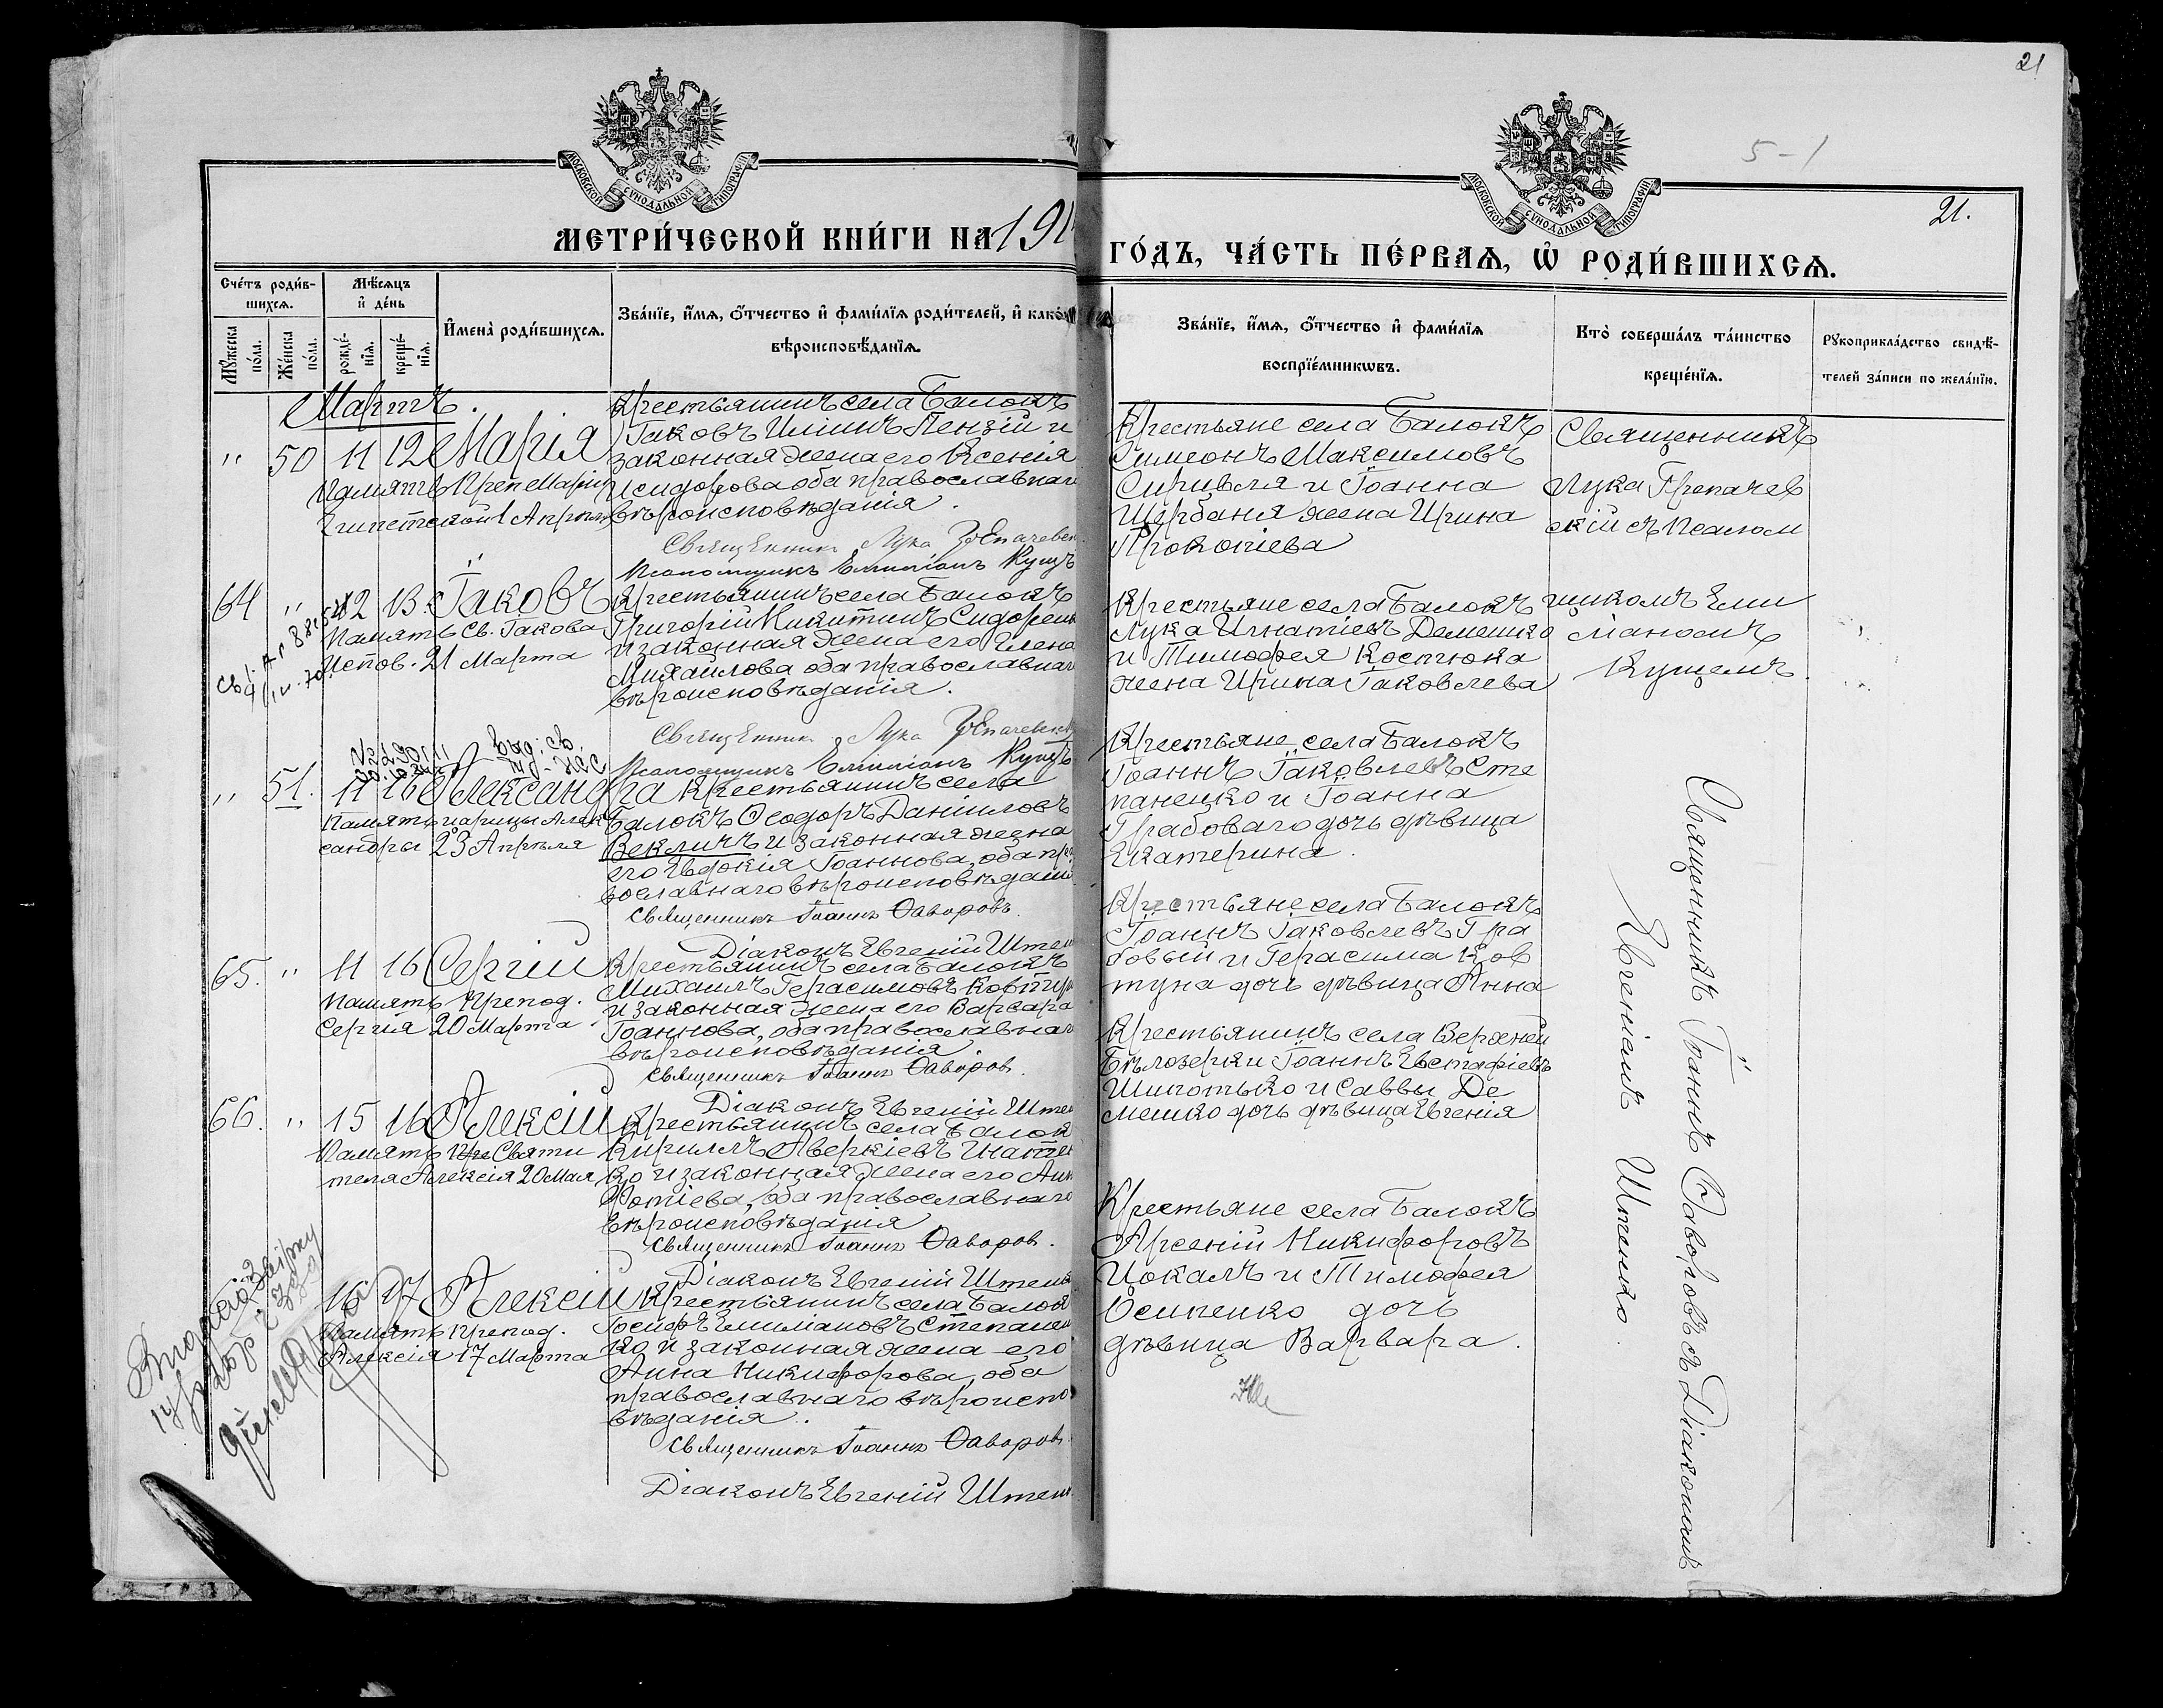 21
5-1
МОСКОВСКОЙ СУНОДАЛЬНОЙ ТИПОГРАФІИ
МОСКОВСКОЙ СУНОДАЛЬНОЙ ТИПОГРАФІИ
21.
МЕТРИ́ЧЕСКОЙ КНИ́ГИ НА 191
ГО́ДЪ, ЧА́СТЬ ПЕ́РВАѦ, Ѡ҆ РОДИ́ВШИХСѦ.
Сче́тъ роди́в-
шихсѧ.
Мꙋ́жеска
по́ла.
Же́нска
по́ла.
Мѣ́сѧцъ
и҆ де́нь
рожде́-
нїѧ.
креще́-
нїѧ.
И҆мена̀ роди́вшихсѧ.
Зва́нїе, и҆́мѧ, ѻ҆́тчество и҆ фами́лїѧ роди́телей, и҆ како́
вѣроисповѣ́данїѧ.
Зва́нїе, и҆́мѧ, ѻ҆́тчество и҆ фами́лїѧ
воспрїе́мникѡвъ.
Кто̀ соверша́лъ та́инство
креще́нїѧ.
Рꙋкоприкла́дство свидѣ́-
телей за́писи по жела́нїю.
Мартъ.
" 50 11 12 Марія
Память Преп Маріи
Египетской 1 Апрѣля
Крестьянинъ села Балокъ
Іаковъ Иліинъ Пензій и
законная жена его Ксенія
Исидорова оба православнаго
вѣроисповѣданія.
Священникъ Лука
Псаломщикъ Емиліанъ Кущъ
Крестьяне села Балокъ
Симеонъ Максимовъ
и Іоанна
Щербаня жена Ирина
Прокопіева
Священникъ
Лука Грепачев
скій съ Псалом
щикомъ Еми
ліаномъ
Кущемъ.
64 " 12 13 Іаковъ
Память Св. Іакова
Испов. 21 Марта
Крестьянинъ села Балокъ
Григорій Никитинъ Сидорен
и законная жена его Елена
Михаилова оба православнаго
вѣроисповѣданія.
Священникъ Лука
Псаломщикъ Емиліанъ Кущъ
Крестьяне села Балокъ
Лука Игнатіевъ Демешко
и Тимофея Костюка
жена Ирина Іаковлева
" 51. 11 16 Александра
Память царицы Алек
сандры 23 Апрѣля
Крестьянинъ села
Балокъ Ѳеодоръ Даніиловъ
Векличъ и законная жена
его Евдокія Іоаннова, оба пра
вославнаго вѣроисповѣданія
Священникъ Іоаннъ Ѳаворовъ.
Діаконъ Евгеній Штен
Крестьяне села Балокъ
Іоаннъ Іаковлевъ Сте
паненко и Іоанна
Грабоваго дочь дѣвица
Екатерина.
65. " 11 16 Сергій
Память Препод.
Сергія 20 Марта
Крестьянинъ села Балокъ
Михаилъ Герасимовъ
и законная жена его Варвара
Іоаннова, оба православнаго
вѣроисповѣданія.
Священникъ Іоаннъ Ѳаворов.
Діаконъ Евгеній Штен
Крестьяне села Балокъ
Іоаннъ Іаковлевъ Гра
бовый и Герасима Ков
туна дочь дѣвица Анна
66. " 15 16 Алексій
Память Святи
теля Алексія 20 Мая
Крестьянинъ села Балок
Кириллъ Аверкіевъ Игнатен
ко и законная жена его Анн
Фотіева, оба православнаго
вѣроисповѣданія
Священникъ Іоаннъ Ѳаворов.
Діаконъ Евгеній Штен
Крестьянинъ села Верхней
Бѣлозерки Іоаннъ Евстафіевъ
Шипотько и Саввы Де
мешко дочь дѣвица Евгенія
16 17 Алексій
Память Препод.
Алексія 17 Марта
Крестьянинъ села Балок
Іосифъ Емиліановъ Степанен
ко и законная жена его
Анна Никифорова, оба
православнаго вѣроиспо
вѣданія.
Священникъ Іоаннъ Ѳаворов.
Діаконъ Евгеній Штен
Крестьяне села Балокъ
Арсеній Никифоровъ
Цокалъ и Тимофея
Осипенко дочь
дѣвица Варвара.
Священникъ Іоаннъ Ѳаворовъ съ Діакономъ
Евгеніемъ Штенко.